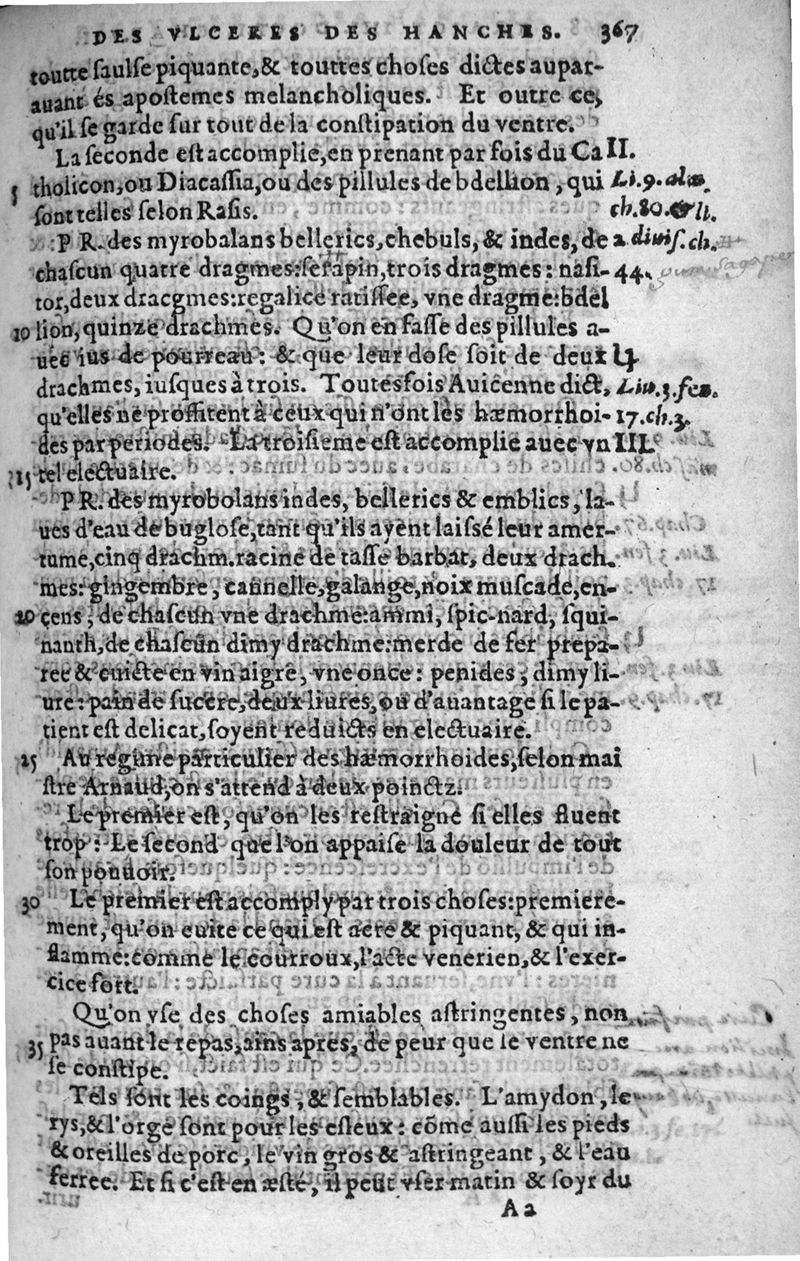 DES VLCERES DES HANCHES. 367
toutte saulse piquante,& touttes choses dictes aupar-
auant és apostemes melancholiques. Et outre ce,
qu'il se garde sur tout de la constipation du ventre.
La seconde est accomplie,en prenant par fois du Ca II.
5 tholicon,ou Diacassia,ou des pillules de bdellion, qui Li.9.alm.
sont telles selon Rasis. ch.80.& li.
P R. des myrobalans bellerics,chebuls, & indes, de 2 diuis.ch.
chascun quatre dragmes:serapin,trois dragmes: nasi- 44.
tor,deux dracgmes:regalice ratissee, vne dragme:bdel
10 lion,quinze drachmes. Qu'on en fasse des pillules a-
uec ius de pourreau: & que leur dose soit de deux
drachmes, iusques à trois. Toutesfois Auicenne dict, Liu.3.fen.
qu'elles ne proffitent à ceux qui n'ont les hæmorrhoi- 17.ch.3.
des par periodes. La troisieme est accomplie auec vn III.
15 tel electuaire.
P R. des myrobolans indes, bellerics & emblics, la-
ues d'eau de buglose,tant qu'ils ayent laissé leur amer-
tume,cinq drachm.racine de tasse barbat, deux drach-
mes: gingembre, cannelle,galange,noix muscade,en-
20 çens, de chascun vne drachme:ammi, spic-nard, squi-
nanth,de chascun dimy drachme:merde de fer prepa-
ree & cuicte en vin aigre, vne once: penides, dimy li-
ure: pain de sucere,deux liures, ou d'auantage si le pa-
tient est delicat, soyent reduicts en electuaire.
25 Au regime particulier des hæmorrhoides,selon mai
stre Arnaud,on s'attend à deux poinctz.
Le premier est, qu'on les restraigne si elles fluent
trop: Le second que l'on appaise la douleur de tout
son pouuoir.
30 Le premier est accomply par trois choses:premiere-
ment, qu'on euite ce qui est acre & piquant, & qui in-
flamme:comme le courroux,l'acte venerien,& l'exer-
cice fort.
Qu'on vse des choses amiables astringentes, non
35 pas auant le repas,ains apres, de peur que le ventre ne
se constipe.
Tels sont les coings, & semblables. L'amydon, le
rys,& l'orge sont pour les esleux: cõme aussi les pieds
& oreilles de porc, le vin gros & astringeant, & l'eau
ferree. Et si c'est en æsté, il peut vser matin & soyr du
Aa